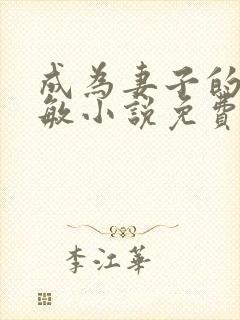 成為妻子的
敏小說免費
李江華